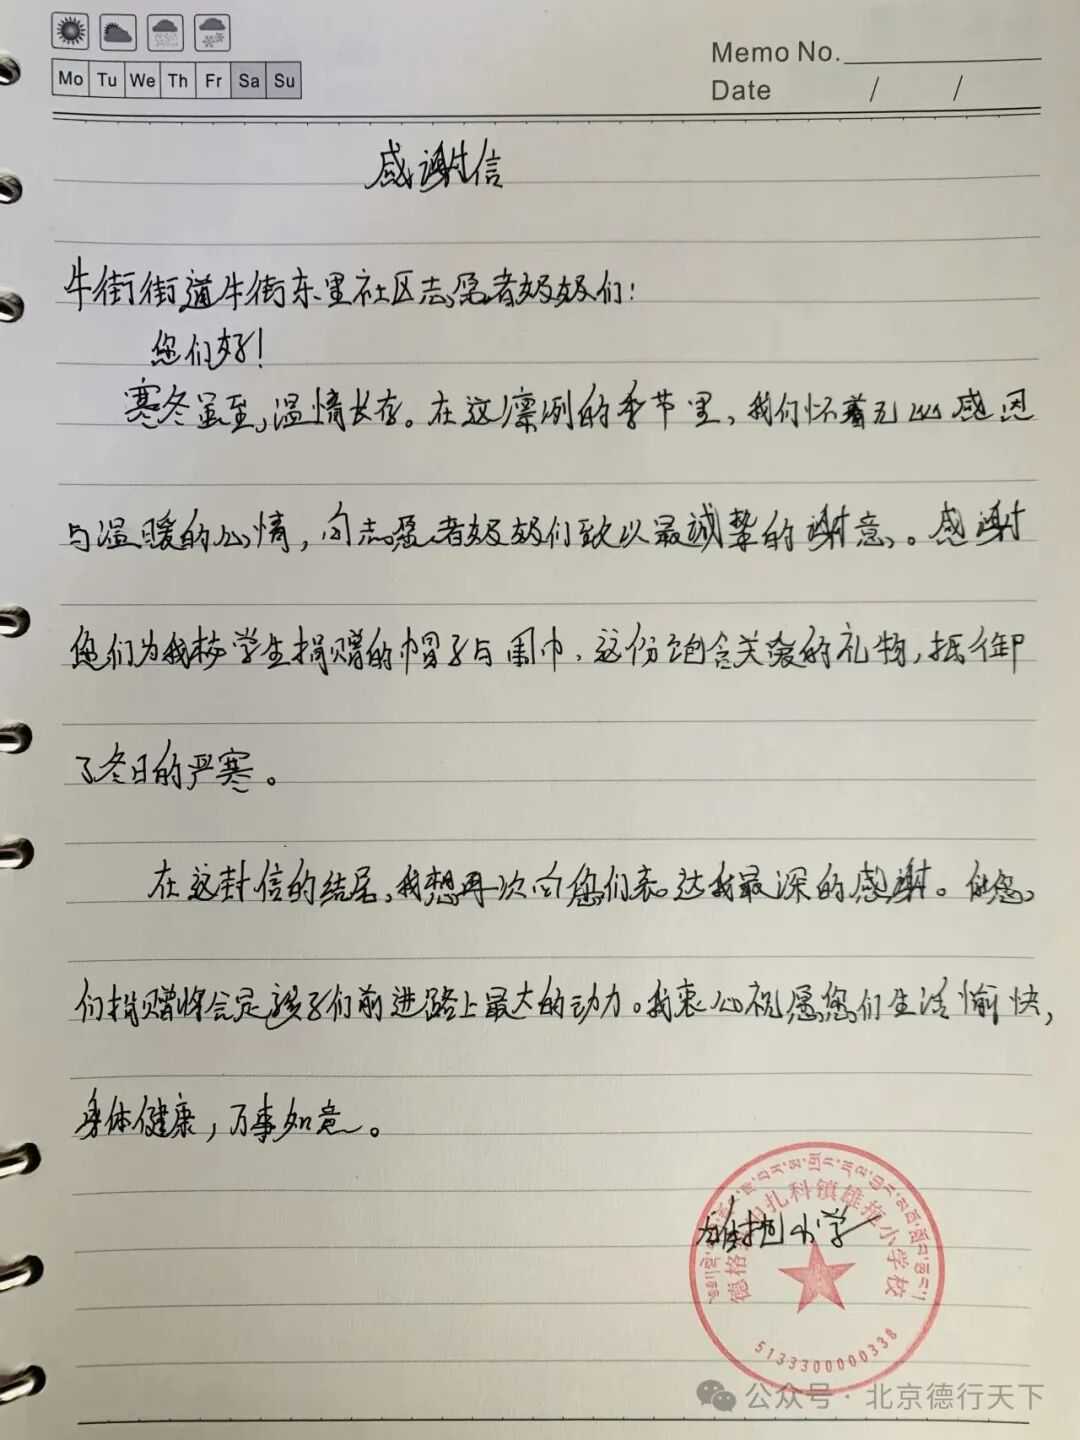 Mo Tu We Th Fr Sa Su
Memo No.
Date / /
感谢信
牛街街道牛街东里社区志愿者奶奶们：
您们好！
寒冬虽至，温情长存。在这凛冽的季节里，我们怀着无比感恩
与温暖的心情，向志愿者奶奶们致以最诚挚的谢意。感谢
您们为我校学生捐赠的帽子与围巾，这份饱含关爱的礼物，抵御
了冬日的严寒。
在这封信的结尾，我想再次向您们表达我最深的感谢。您
们捐赠将会是孩子们前进路上最大的动力。我衷心祝愿您们生活愉快，
身体健康，万事如意。
雄拖小学
德格 扎科镇雄拖小学校
5133300000338
公众号·北京德行天下